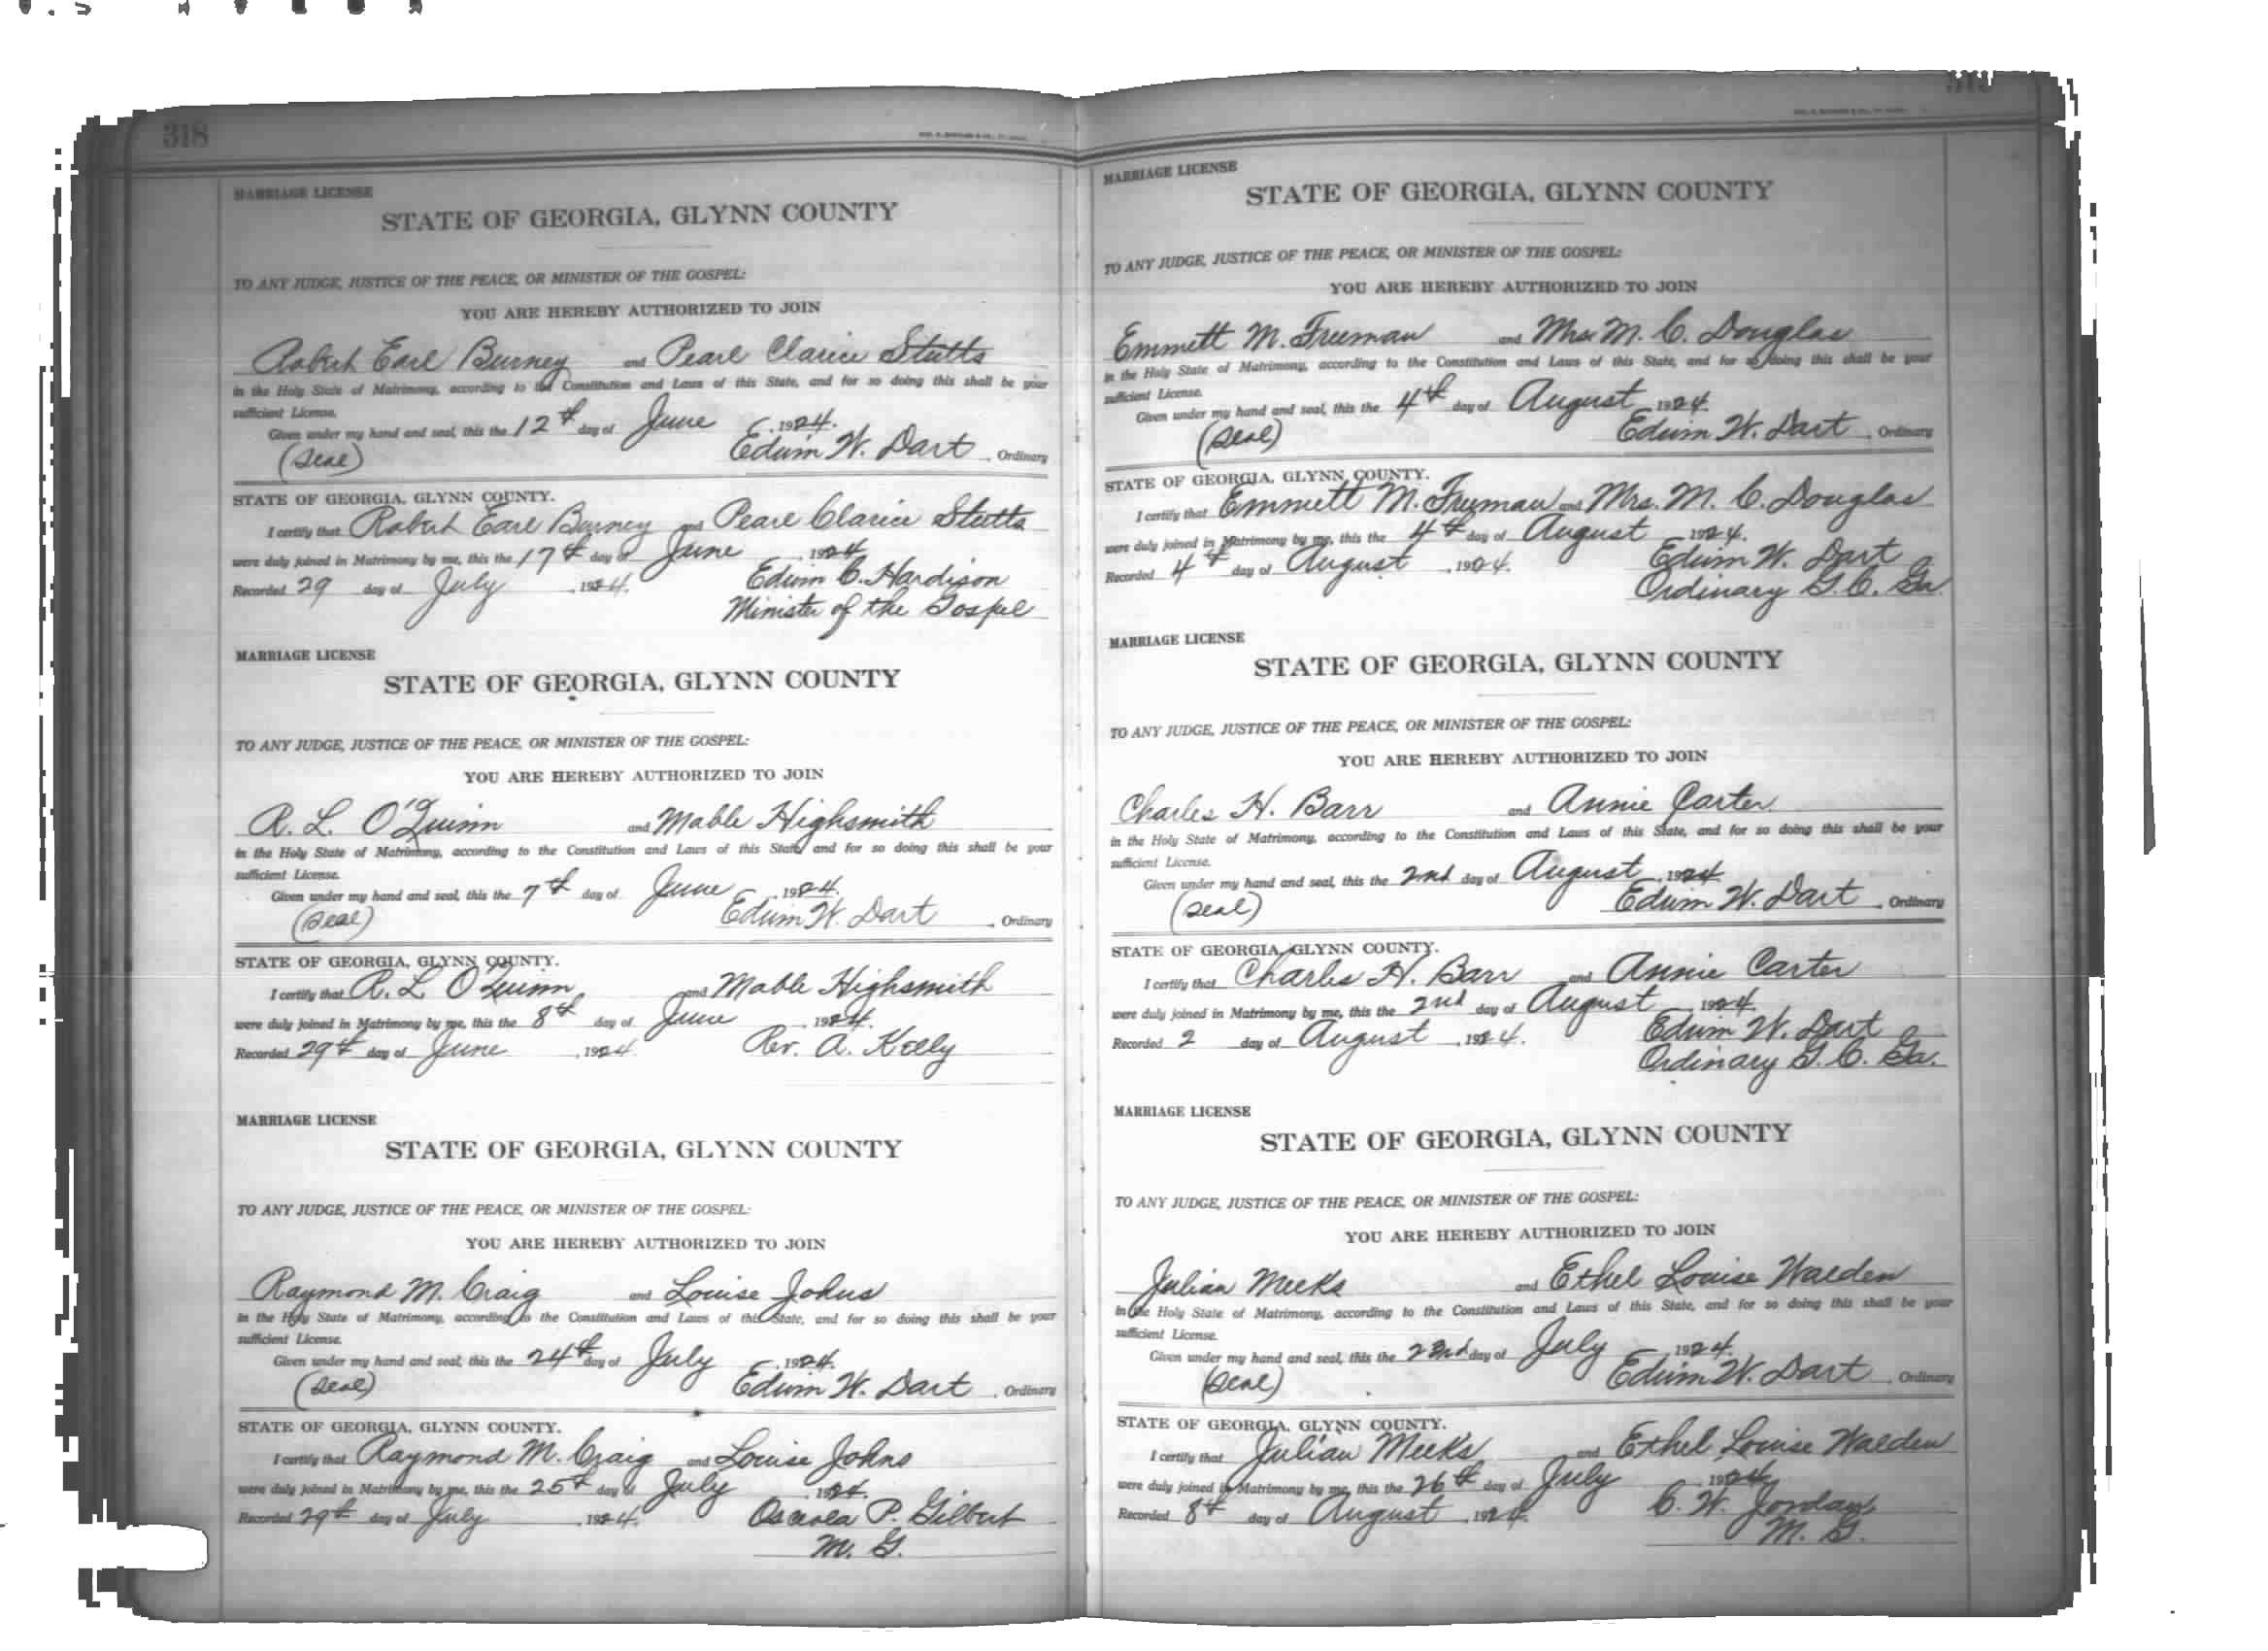 318
MARRIAGE LICENSE
STATE OF GEORGIA, GLYNN COUNTY
TO ANY JUDGE, JUSTICE OF THE PEACE, OR MINISTER OF THE GOSPEL:
YOU ARE HEREBY AUTHORIZED TO JOIN
Robert Earl Burney and Pearl Clarice Stutts
in the Holy State of Matrimony, according to the Constitution and Laws of this State, and for so doing this shall be your
sufficient License.
Given under my hand and seal, this the 12th day of June, 1924.
(Seal) Edwin W. Dart, Ordinary
STATE OF GEORGIA, GLYNN COUNTY.
I certify that Robert Earl Burney and Pearl Clarice Stutts
were duly joined in Matrimony by me, this the 17th day of June, 1924
Recorded 29 day of July, 1924. Edwin C. Hardison
Minister of the Gospel
MARRIAGE LICENSE
STATE OF GEORGIA, GLYNN COUNTY
TO ANY JUDGE, JUSTICE OF THE PEACE, OR MINISTER OF THE GOSPEL:
YOU ARE HEREBY AUTHORIZED TO JOIN
R. L. O'Quinn and Mable Highsmith
in the Holy State of Matrimony, according to the Constitution and Laws of this State, and for so doing this shall be your
sufficient License.
Given under my hand and seal, this the 7th day of June, 1924.
(Seal) Edwin W. Dart, Ordinary
STATE OF GEORGIA, GLYNN COUNTY.
I certify that R. L O'Quinn and Mable Highsmith
were duly joined in Matrimony by me, this the 8th day of June, 1924.
Recorded 29th day of June, 1924 Rev. A. Kelly
MARRIAGE LICENSE
STATE OF GEORGIA, GLYNN COUNTY
TO ANY JUDGE, JUSTICE OF THE PEACE, OR MINISTER OF THE GOSPEL:
YOU ARE HEREBY AUTHORIZED TO JOIN
Raymond M. Craig and Louise Johns
in the Holy State of Matrimony, according to the Constitution and Laws of this State, and for so doing this shall be your
sufficient License.
Given under my hand and seal, this the 24th day of July, 1924.
(Seal) Edwin W. Dart, Ordinary
STATE OF GEORGIA, GLYNN COUNTY.
I certify that Raymond M. Craig and Louise Johns
were duly joined in Matrimony by me, this the 25th day of July, 1924.
Recorded 29th day of July, 1924. Osceola P. Gilbert
M. G.
MARRIAGE LICENSE
STATE OF GEORGIA, GLYNN COUNTY
TO ANY JUDGE, JUSTICE OF THE PEACE, OR MINISTER OF THE GOSPEL:
YOU ARE HEREBY AUTHORIZED TO JOIN
Emmett M. Freeman and Mrs. M. C. Douglas
in the Holy State of Matrimony, according to the Constitution and Laws of this State, and for so doing this shall be your
sufficient License.
Given under my hand and seal, this the 4th day of August, 1924.
(Seal) Edwin W. Dart, Ordinary
STATE OF GEORGIA, GLYNN COUNTY.
I certify that Emmett M. Freeman and Mrs. M. C. Douglas
were duly joined in Matrimony by me, this the 4th day of August, 1924.
Recorded 4th day of August, 1924. Edwin W. Dart
Ordinary G. C. Ga.
MARRIAGE LICENSE
STATE OF GEORGIA, GLYNN COUNTY
TO ANY JUDGE, JUSTICE OF THE PEACE, OR MINISTER OF THE GOSPEL:
YOU ARE HEREBY AUTHORIZED TO JOIN
Charles H. Barr and Annie Carter
in the Holy State of Matrimony, according to the Constitution and Laws of this State, and for so doing this shall be your
sufficient License.
Given under my hand and seal, this the 2nd day of August, 1924
(Seal) Edwin W. Dart, Ordinary
STATE OF GEORGIA, GLYNN COUNTY.
I certify that Charles H. Barr and Annie Carter
were duly joined in Matrimony by me, this the 2nd day of August, 1924.
Recorded 2 day of August, 1924. Edwin W. Dart
Ordinary G. C. Ga.
MARRIAGE LICENSE
STATE OF GEORGIA, GLYNN COUNTY
TO ANY JUDGE, JUSTICE OF THE PEACE, OR MINISTER OF THE GOSPEL:
YOU ARE HEREBY AUTHORIZED TO JOIN
Julian Meeks and Ethel Louise Walden
in the Holy State of Matrimony, according to the Constitution and Laws of this State, and for so doing this shall be your
sufficient License.
Given under my hand and seal, this the 23nd day of July, 1924.
(Seal) Edwin W. Dart, Ordinary
STATE OF GEORGIA, GLYNN COUNTY.
I certify that Julian Meeks and Ethel Louise Walden
were duly joined in Matrimony by me, this the 26th day of July, 1924
Recorded 8th day of August, 1924. C. W. Jordan,
M. G.